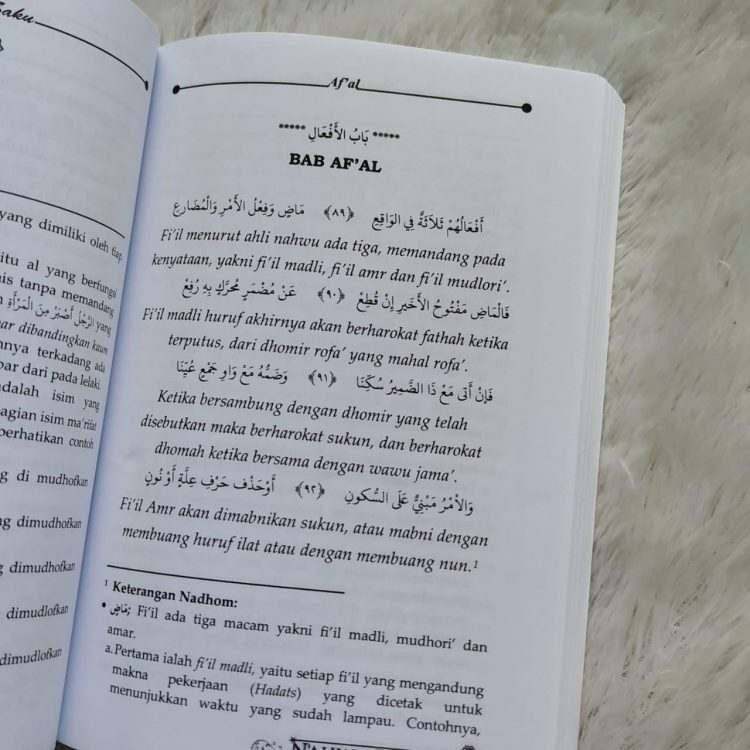 yang dimiliki oleh tiap
itu al yang berfungsi
nis tanpa memandang
الرَّجُلُ أَصْبَرُ مِنَ الْمَرْأَةِ yang
bar dibandingkan kaum
nnya terkadang ada
bar dari pada lelaki.
adalah isim yang
bagian isim ma'rifat
perhatikan contoh
ng di mudhofkan
ng dimudhofkan
g dimudhofkan
dimudlofkan
dimudlofkan
Af'al
***** بَابُ الأَفْعَالِ *****
BAB AF'AL
أَفْعَالُهُمْ ثَلَاثَةٌ فِي الْوَاقِعِ ﴿٨٩﴾ مَاضٍ وَفِعْلُ الأَمْرِ وَالْمُضَارِعِ
Fi'il menurut ahli nahwu ada tiga, memandang pada
kenyataan, yakni fi'il madli, fi'il amr dan fi'il mudlori'.
فَالْمَاضِ مَفْتُوحُ الأَخِيرِ إِنْ قُطِعْ ﴿٩٠﴾ عَنْ مُضْمَرٍ مُحَرَّكٍ بِهِ رُفِعْ
Fi'il madli huruf akhirnya akan berharokat fathah ketika
terputus, dari dhomir rofa' yang mahal rofa'.
فَإِنْ أَتَى مَعْ ذَا الضَّمِيرِ سُكِّنَا ﴿٩١﴾ وَضَمُّهُ مَعْ وَاوِ جَمْعٍ عُيِّنَا
Ketika bersambung dengan dhomir yang telah
disebutkan maka berharokat sukun, dan berharokat
dhomah ketika bersama dengan wawu jama'.
وَالأَمْرُ مَبْنِيٌّ عَلَى السُّكُونِ ﴿٩٢﴾ أَوْحَذْفِ حَرْفِ عِلَّةٍ أَوْ نُونٍ
Fi'il Amr akan dimabnikan sukun, atau mabni dengan
membuang huruf ilat atau dengan membuang nun.¹
¹ Keterangan Nadhom:
• مَاضٍ: Fi'il ada tiga macam yakni fi'il madli, mudhori' dan
amar.
a. Pertama ialah fi'il madli, yaitu setiap fi'il yang mengandung
makna pekerjaan (Hadats) yang dicetak untuk
menunjukkan waktu yang sudah lampau. Contohnya,